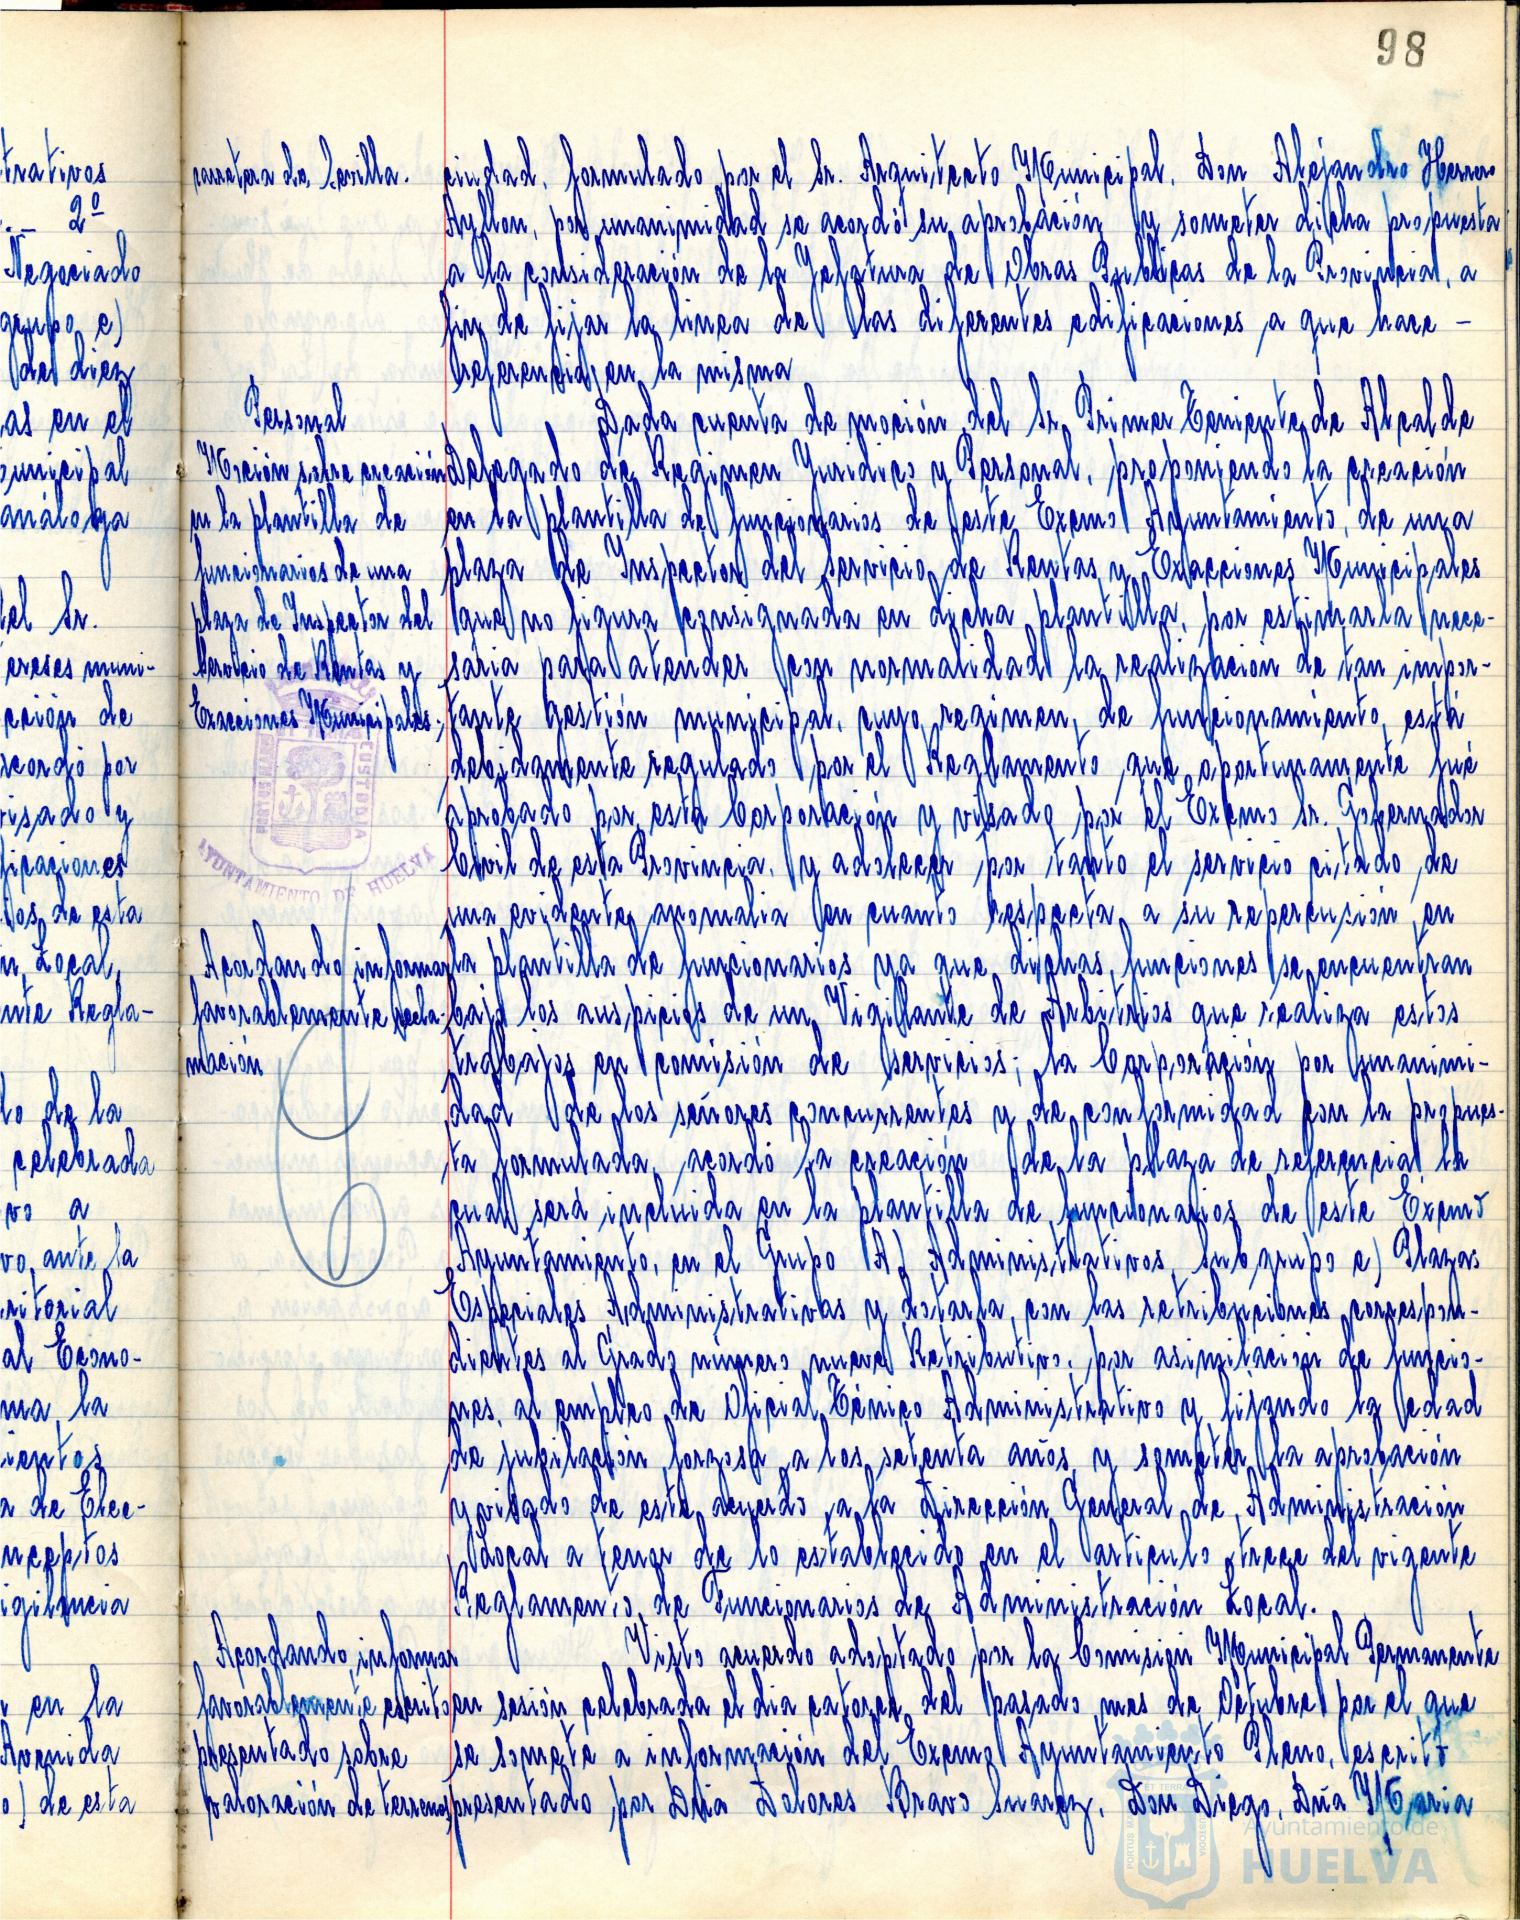 98
trativos
2º
Negociado
grupo c)
de diez
as en el
municipal
análoga
del Sr.
ereses muni-
cción de
acordó por
visado y
ficaciones
os, de esta
n Local,
nte Regla-
lo de la
celebrada
vo a
vo, ante la
ritorial
al Econo-
ma, la
ientos
a de Elec-
nceptos
igilancia
y en la
Avenida
o) de esta
carretera de Sevilla.
Personal
Moción sobre creación
en la plantilla de
funcionarios de una
plaza de Inspector del
Servicio de Rentas y
Exacciones Municipales;
CUSTODIA
AYUNTAMIENTO DE HUELVA
Acordando informar
favorablemente recla-
mación
Acordando informar
favorablemente escrito
presentado sobre
valoración de terrenos
ciudad, formulado por el Sr. Arquitecto Municipal, Don Alejandro Herrero
Ayllon, por unanimidad se acordó su aprobación y someter dicha propuesta
a la consideración de la Jefatura de Obras Publicas de la Provincia, a
fin de fijar la linea de las diferentes edificaciones a que hace -
referencia en la misma
Dada cuenta de moción del Sr. Primer Teniente de Alcalde
Delegado de Regimen Juridico y Personal, proponiendo la creación
en la plantilla de funcionarios de este Excmo Ayuntamiento, de una
plaza de Inspector del servicio de Rentas y Exacciones Municipales
que no figura consignada en dicha plantilla, por estimarla nece-
saria para atender con normalidad la realización de tan impor-
tante gestión municipal, cuyo regimen de funcionamiento, está
debidamente regulado por el Reglamento que oportunamente fué
aprobado por esta Corporación y visado por el Excmo Sr. Gobernador
Civil de esta Provincia, y adolecer por tanto el servicio citado de
una evidente anomalia en cuanto respecta a su repercusión en
la plantilla de funcionarios ya que dichas funciones se encuentran
bajo los auspicios de un Vigilante de Arbitrios que realiza estos
trabajos en comisión de servicios; la Corporación por unanimi-
dad de los señores concurrentes y de conformidad con la propues-
ta formulada, acordó la creación de la plaza de referencia la
cual será incluida en la plantilla de funcionarios de este Excmo
Ayuntamiento, en el Grupo A) Administrativos, Subgrupo c) Plazas
Especiales Administrativas y dotarla con las retribuciones correspon-
dientes al Grado número nueve Retributivo, por asimilación de funcio-
nes, al empleo de Oficial Técnico Administrativo y fijando la edad
de jubilación forzosa a los setenta años, y someter la aprobación
y visado de este acuerdo a la Dirección General de Administración
Local a tenor de lo establecido en el articulo trece del vigente
Reglamento de Funcionarios de Administración Local.
Visto acuerdo adoptado por la Comisión Municipal Permanente
en sesión celebrada el dia catorce del pasado mes de Octubre por el que
se somete a información del Excmo Ayuntamiento Pleno, escrito
presentado por Dña Dolores Bravo Suarez, Don Diego, Dña Maria
Ayuntamiento de
HUELVA